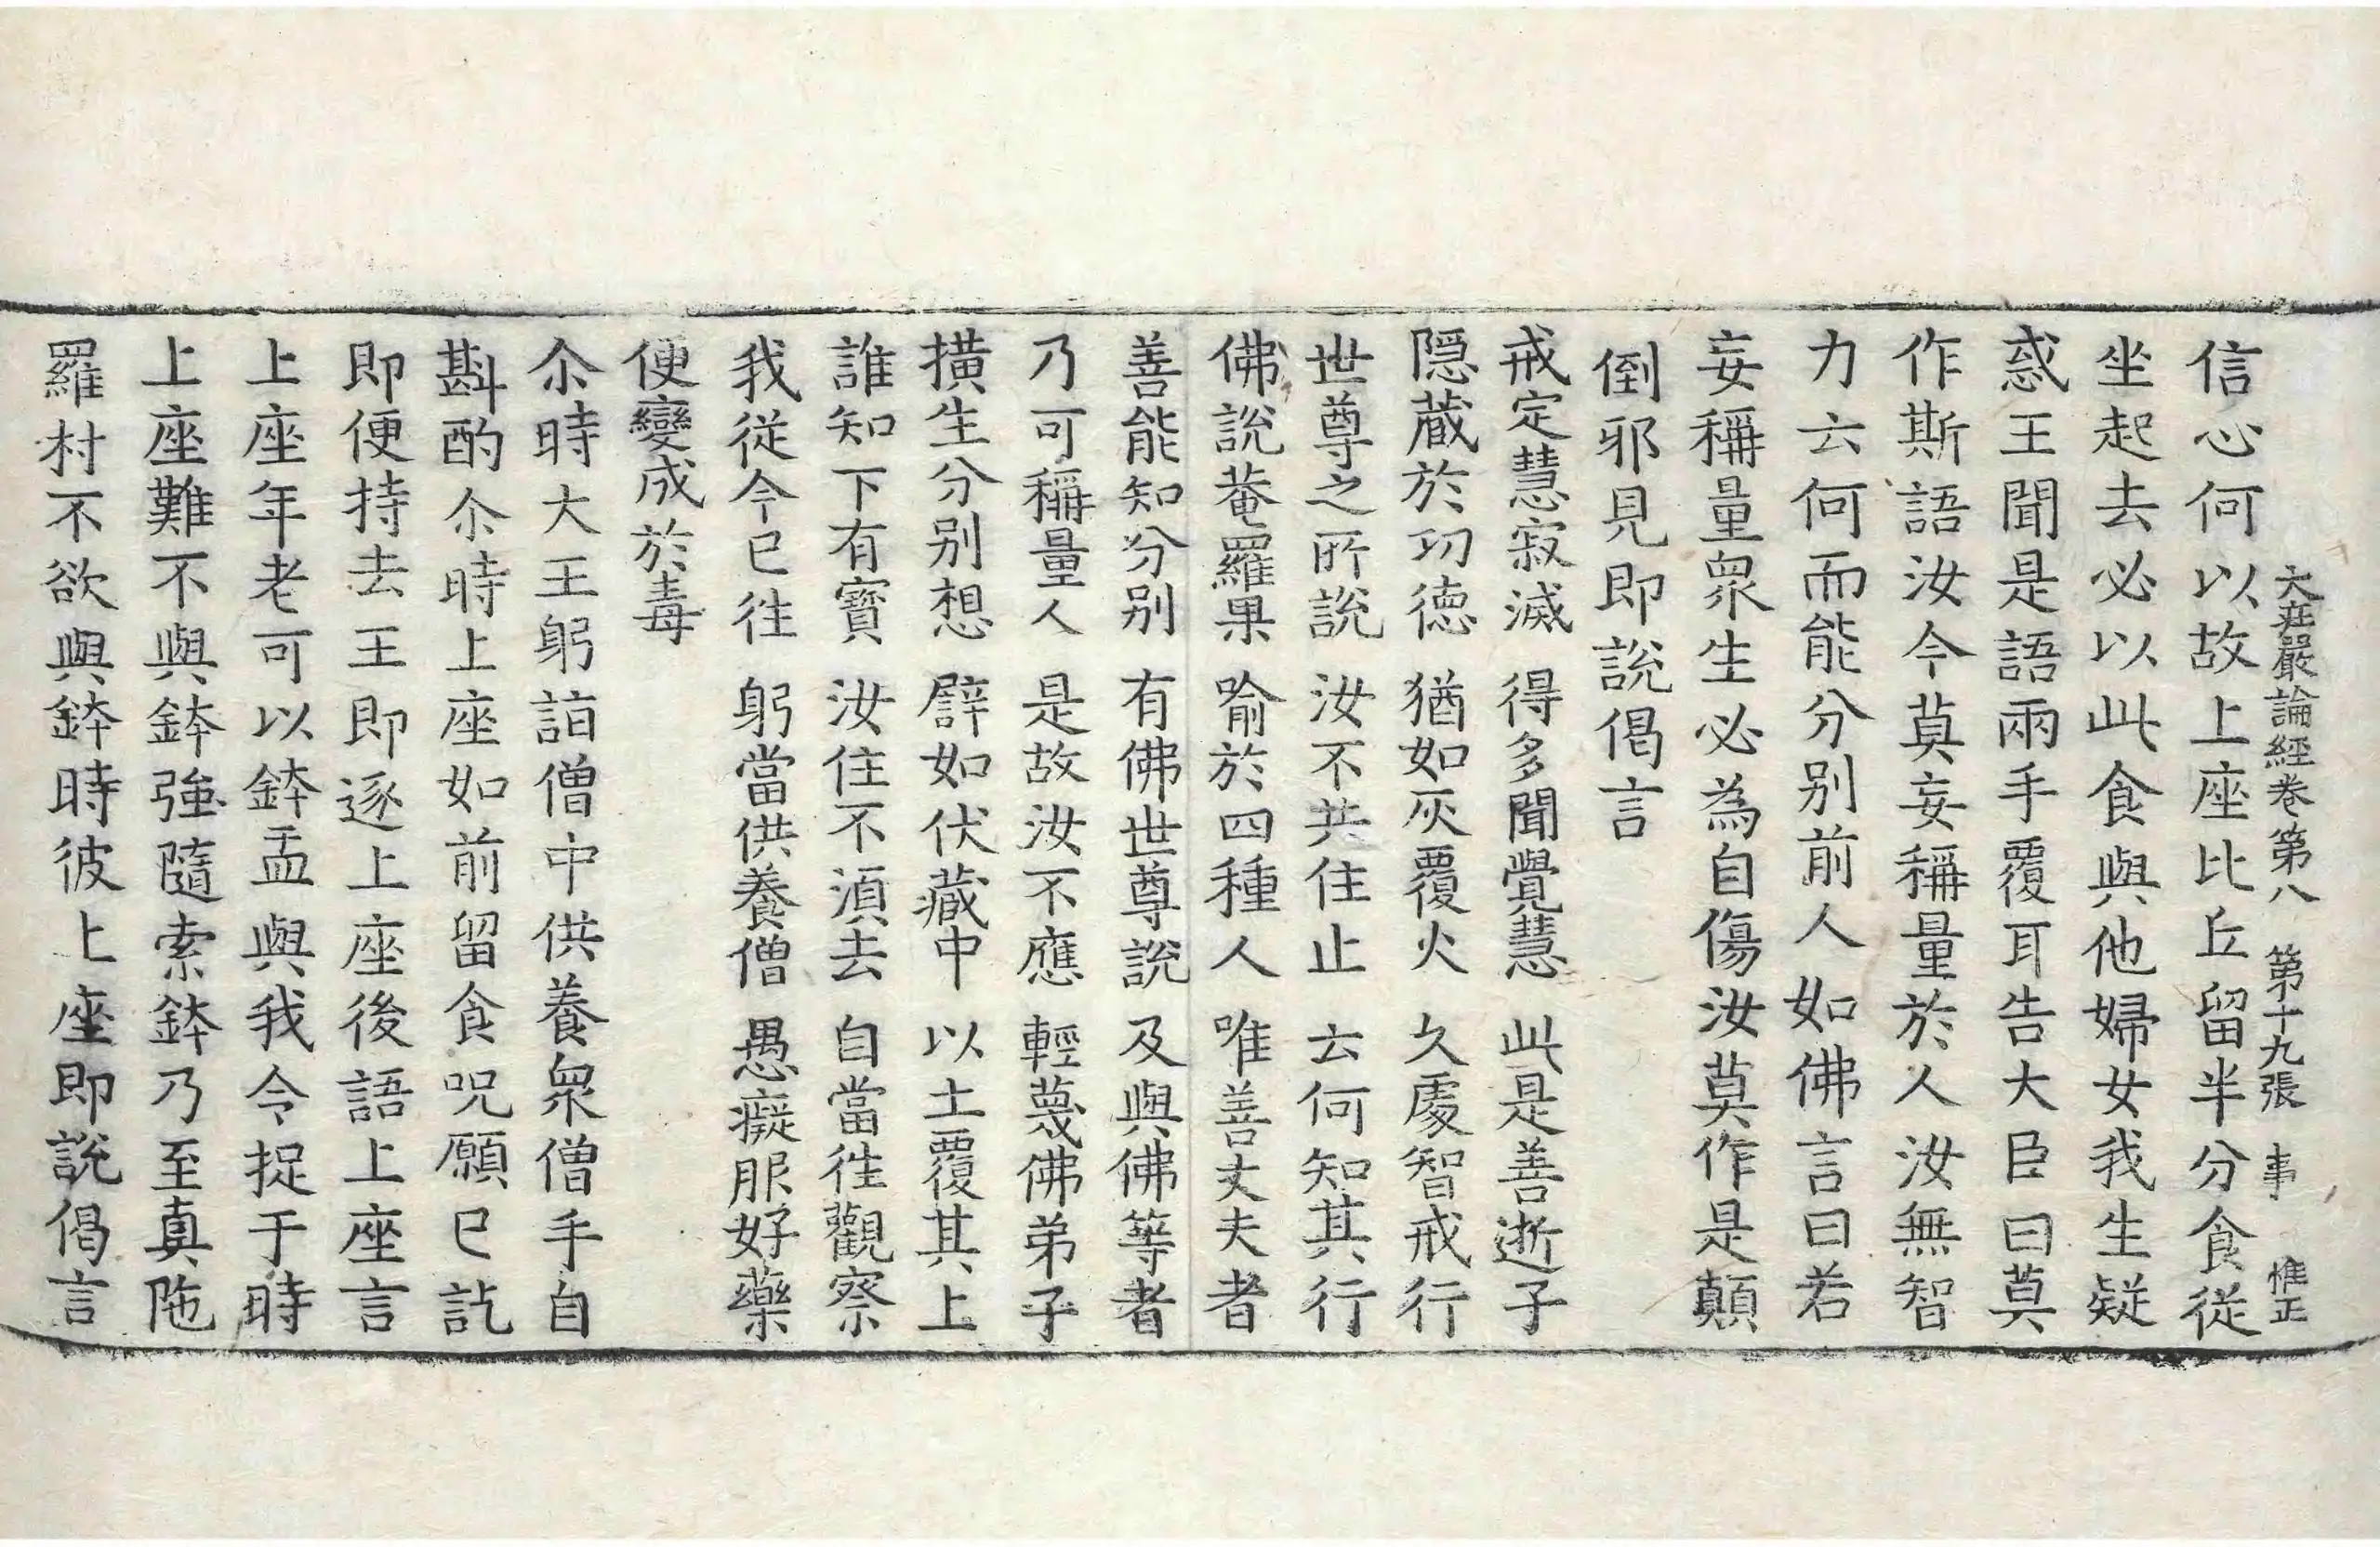 大莊嚴論經卷第八 第十九張 事 惟正
信心何以故上座比丘留半分食從
坐起去必以此食與他婦女我生疑
惑王聞是語兩手覆耳告大臣曰莫
作斯語汝今莫妄稱量於人汝無智
力云何而能分別前人如佛言曰若
妄稱量眾生必為自傷汝莫作是顛
倒邪見即說偈言
戒定慧寂滅 得多聞覺慧 此是善逝子
隱藏於功德 猶如灰覆火 久處智戒行
世尊之所說 汝不共住止 云何知其行
佛說菴羅果 喻於四種人 唯善丈夫者
善能知分別 有佛世尊說 及與佛等者
乃可稱量人 是故汝不應 輕蔑佛弟子
撗生分別想 譬如伏藏中 以土覆其上
誰知下有寶 汝住不湏去 自當往觀察
我從今已往 躬當供養僧 愚癡服好藥
便變成於毒
尒時大王躬詣僧中供養眾僧手自
斟酌尒時上座如前留食呪願已訖
即便持去王即逐上座後語上座言
上座年老可以鉢盂與我令捉于時
上座難不與鉢強隨索鉢乃至真陁
羅村不欲與鉢時彼上座即說偈言